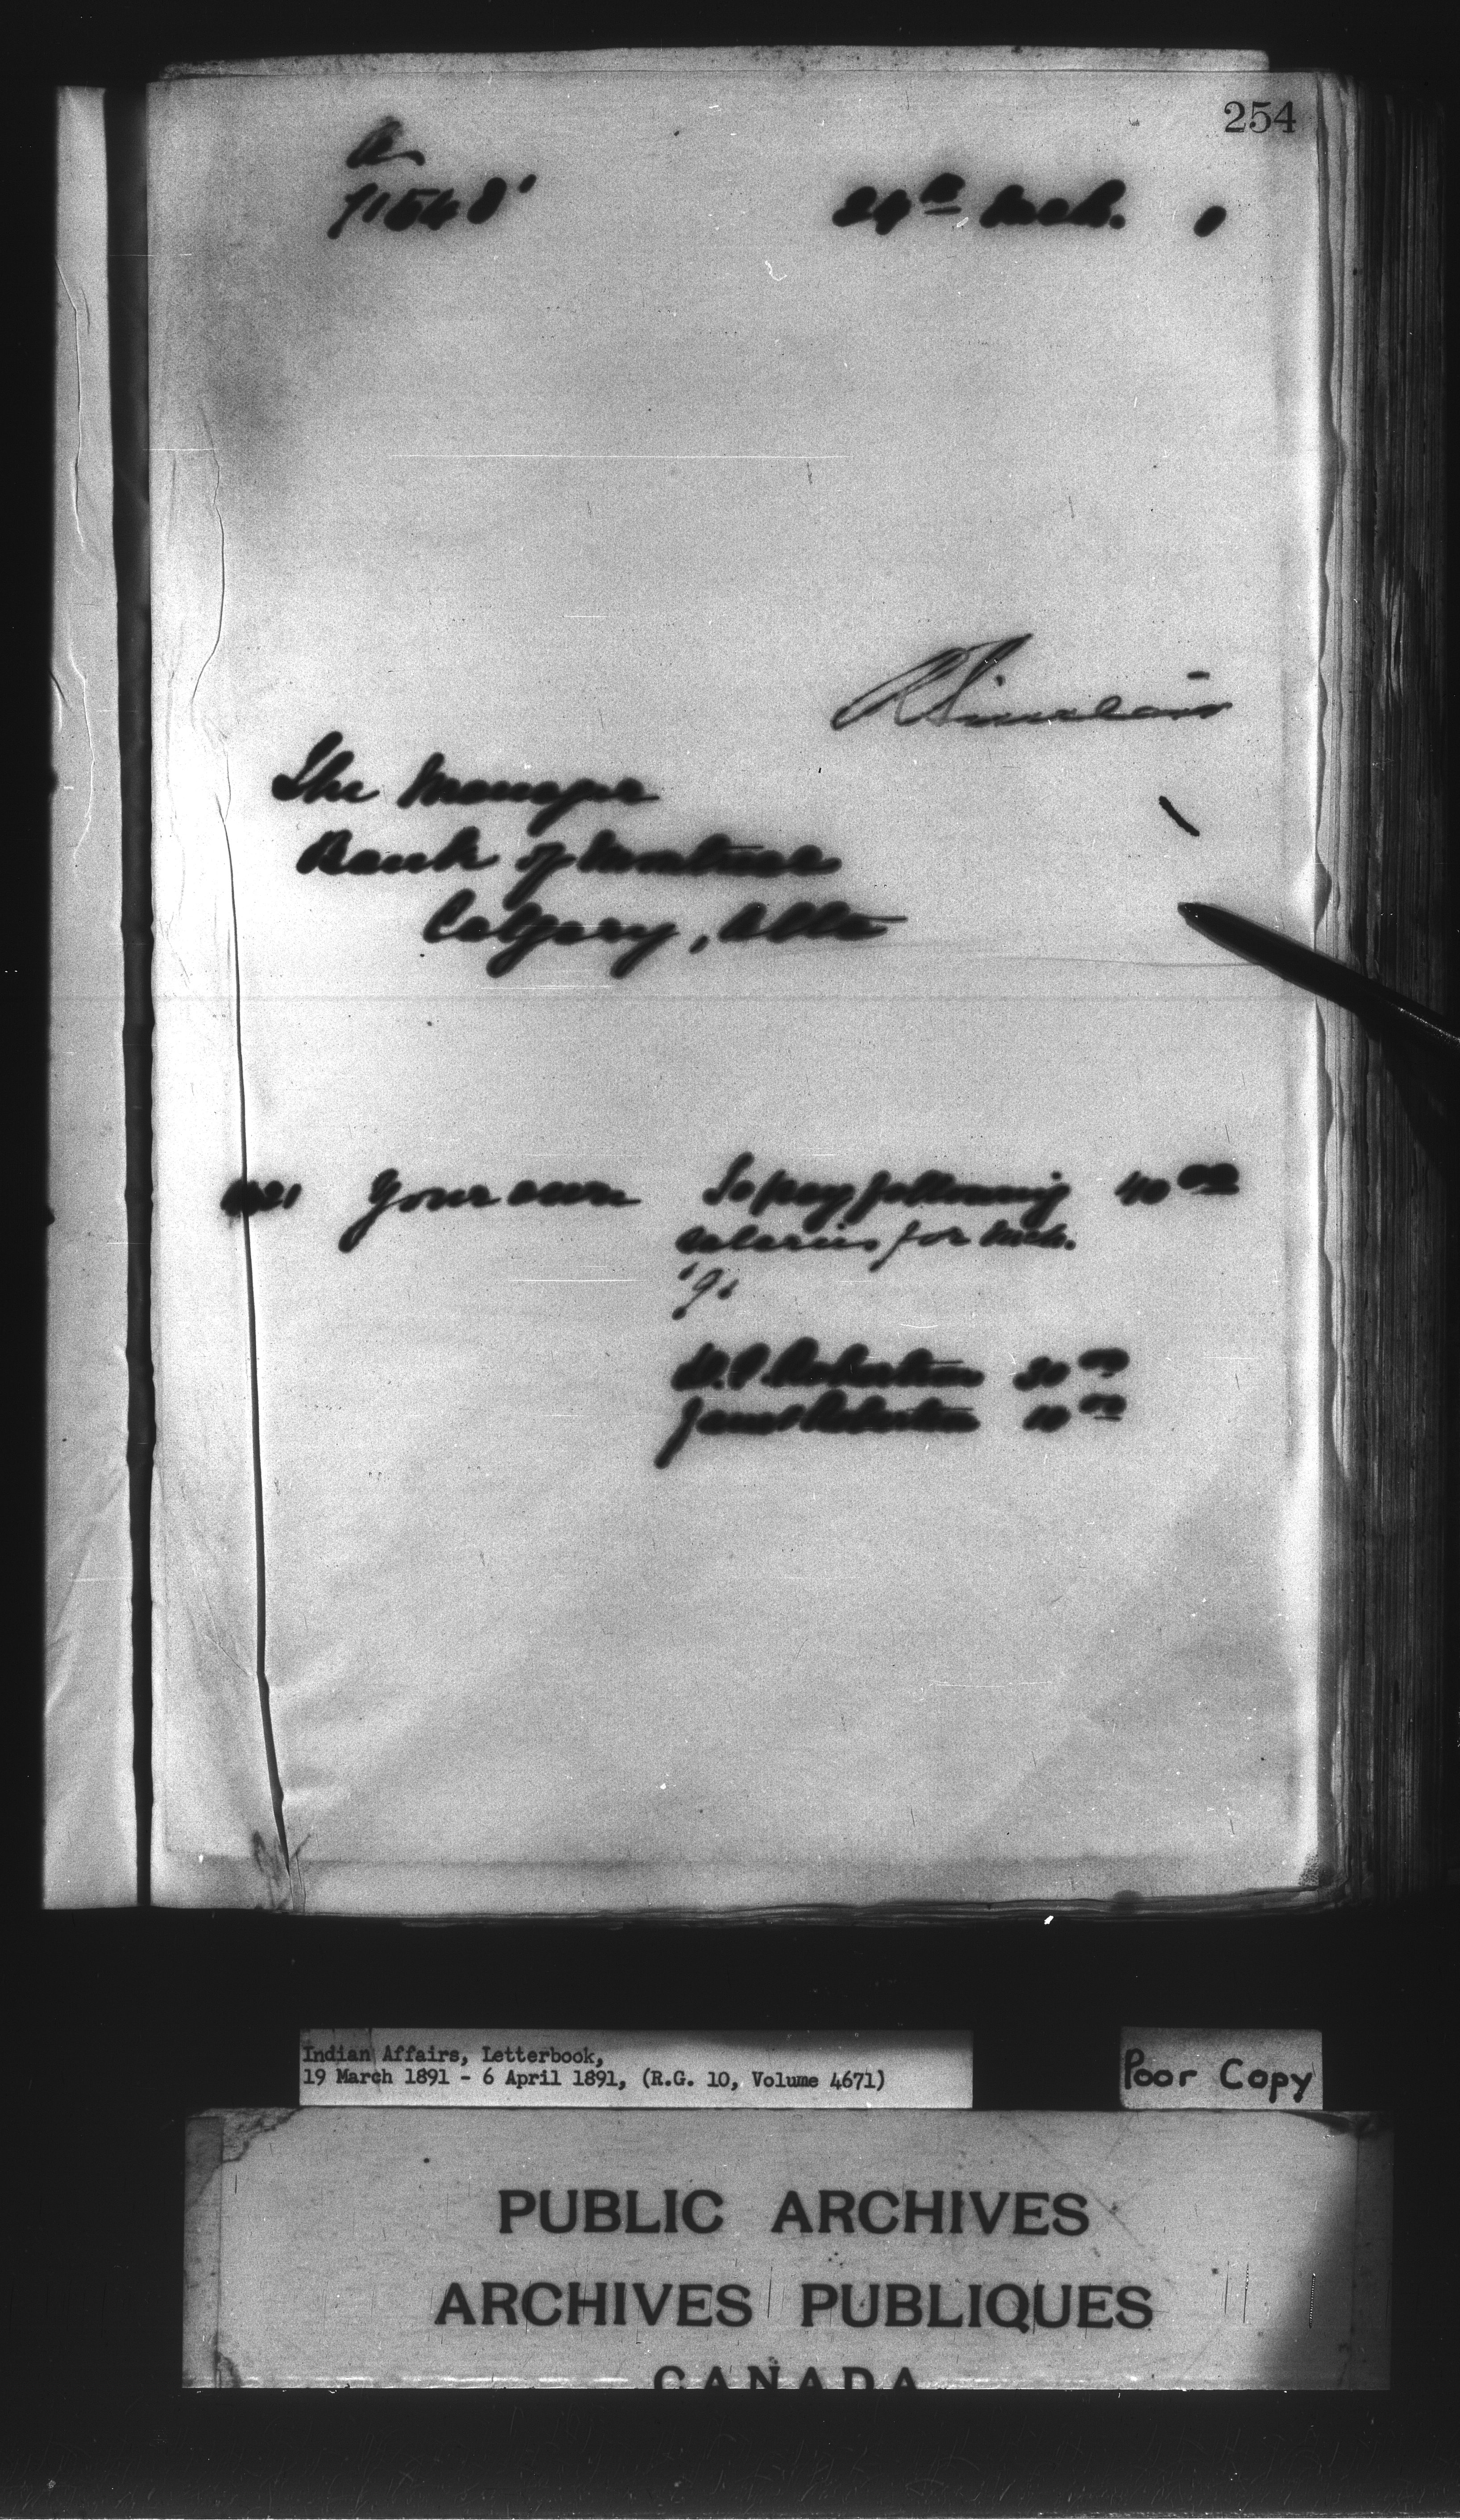 254
A
71548'
24th Mch. 0
R Sinclair
The Manager
Bank of Montreal
Calgary, Alta
1621 Your own To pay following 40 00
salaries for Mch.
'91
Robertson 30 00
Janet Robertson 10 00
Indian Affairs, Letterbook,
19 March 1891 - 6 April 1891, (R.G. 10, Volume 4671)
Poor Copy
PUBLIC ARCHIVES
ARCHIVES PUBLIQUES
CANADA